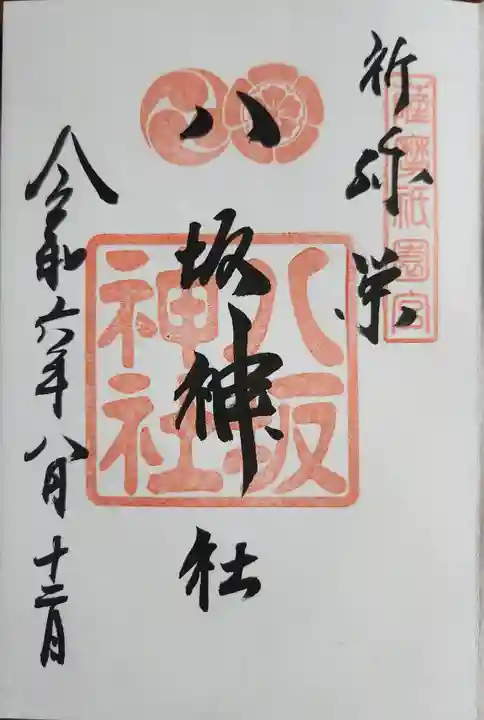 祈弥栄
薩摩祇園宮
八坂神社
八坂神社
令和六年八月十二日